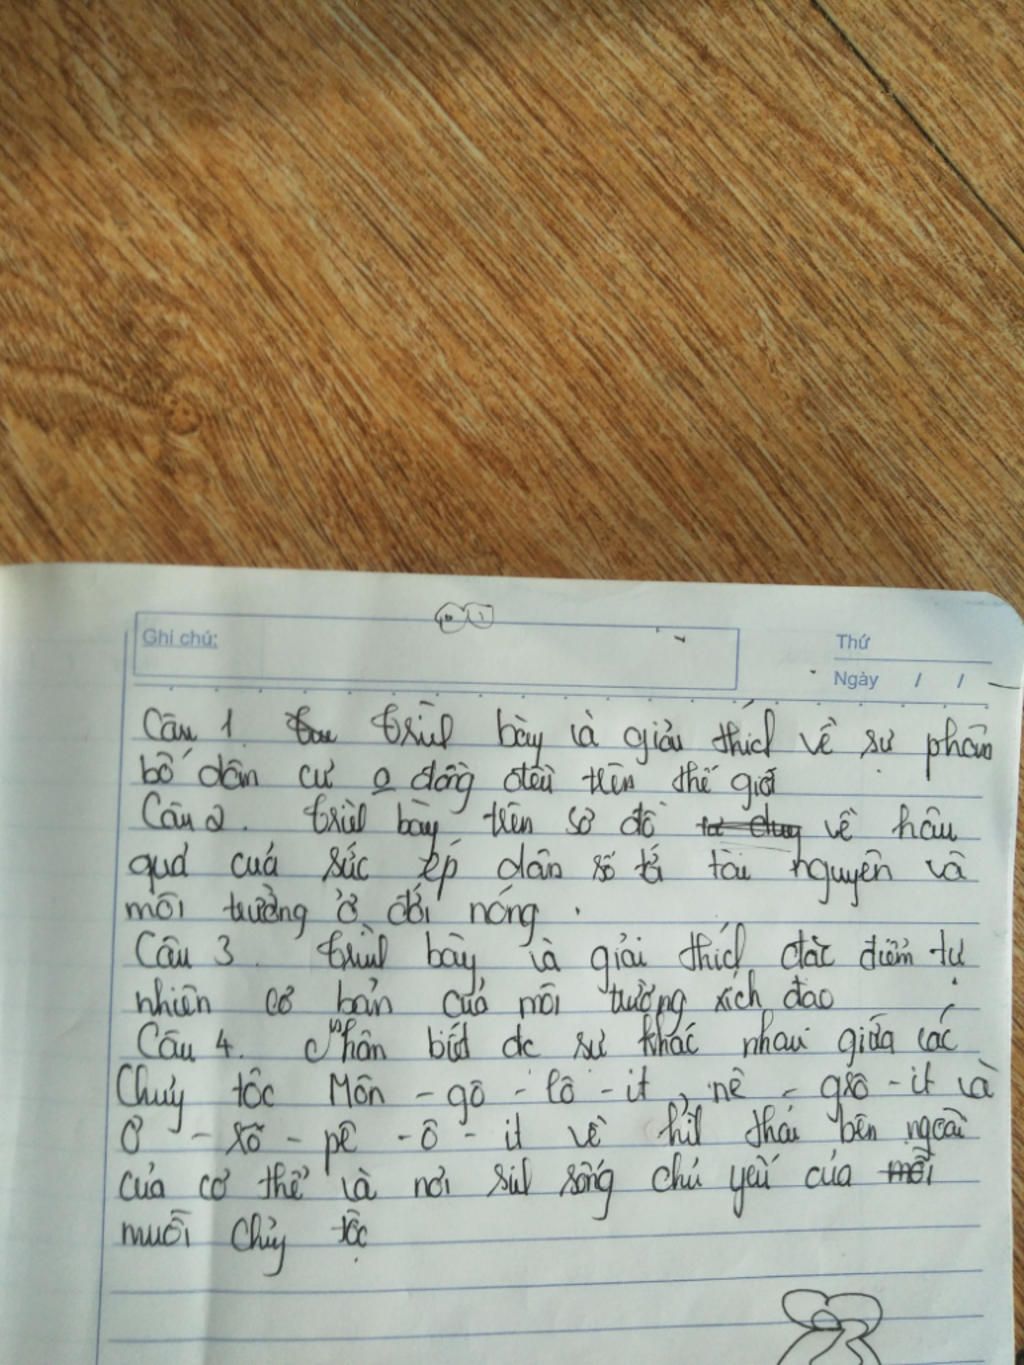 Ghi chú:
Thứ
Ngày / /
Câu 1. trìl bày là giải thích về sự phân
bố dân cư o đồng đều trên thế giới
Câu 2. trìl bày trên sơ đồ về hậu
quả của sức ép dân số tới tài nguyên và
môi trường ở đới nóng.
Câu 3. trìl bày là giải thích đặc điểm tự
nhiên cơ bản của môi trường xích đạo
Câu 4. Phân biệt đc sự khác nhau giữa các
Chủy tộc Môn - gô - lô - it, nê - grô - it và
Ơ - rô - pê - ô - it về hìl thái bên ngoài
của cơ thể là nơi sil sống chủ yếu của
muỗi chủy tộc